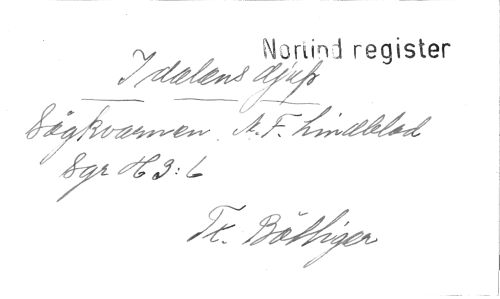 Norlind register
I dalens djup
Sågkvarnen. A. F. Lindblad
Sgr H 3:6
Tx. Böttiger